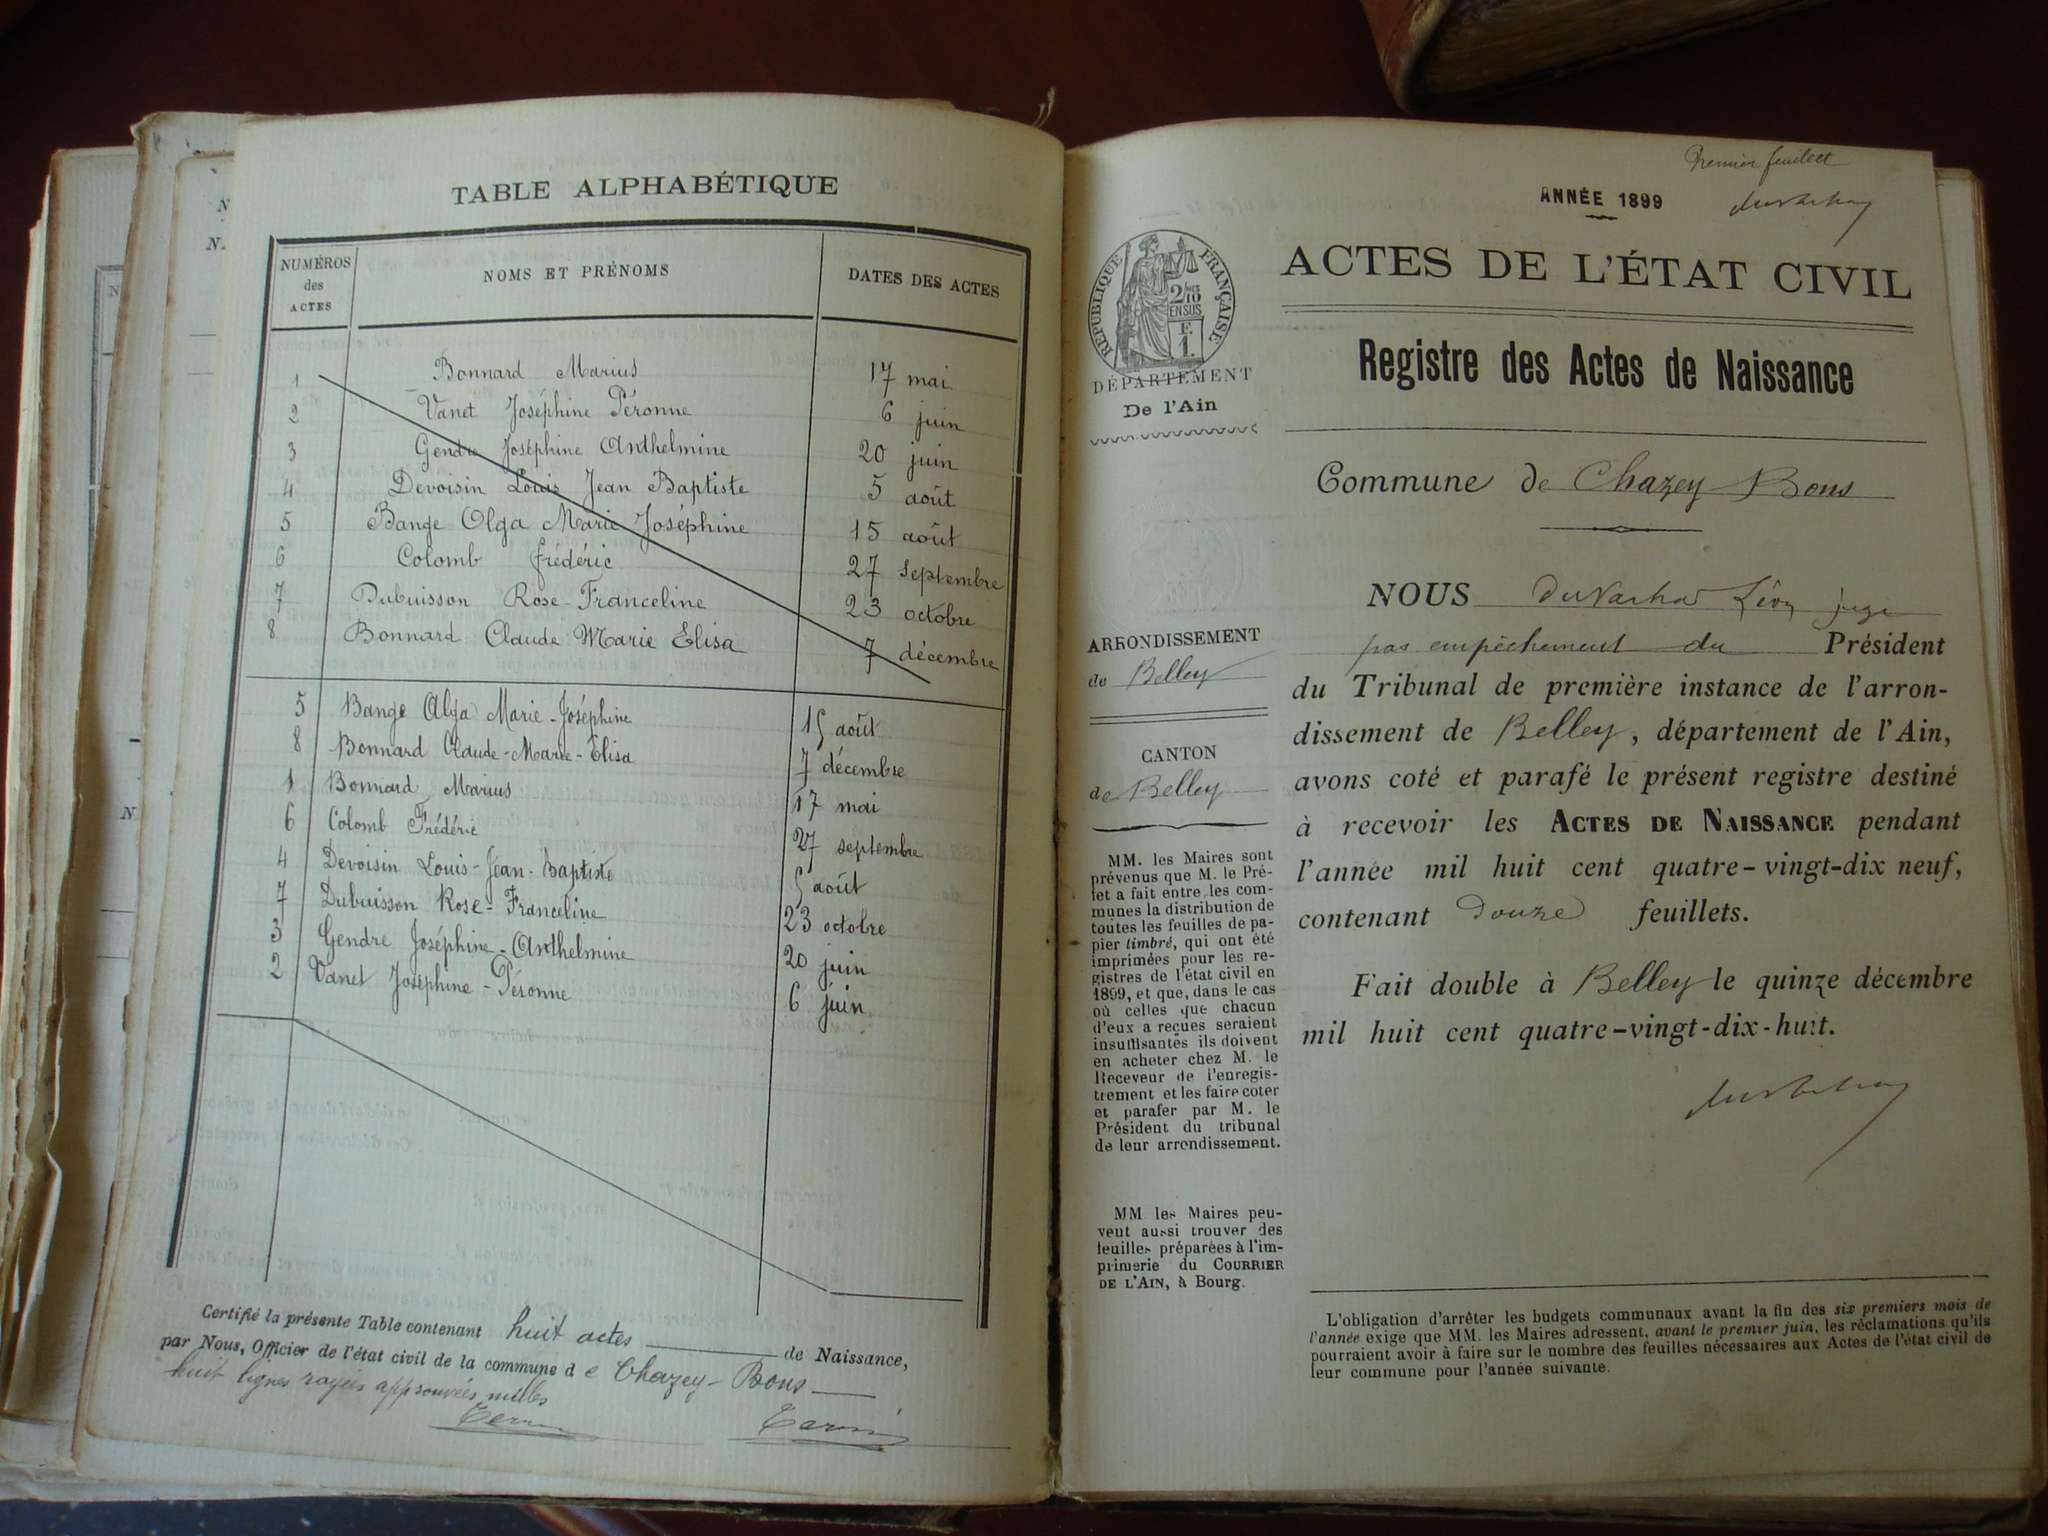 TABLE ALPHABÉTIQUE
NUMÉROS des ACTES
NOMS ET PRÉNOMS
DATES DES ACTES
1 Bonnard Marius 17 mai
2 Vanet Joséphine Péronne 6 juin
3 Gendre Joséphine Anthelmine 20 juin
4 Devoisin Louis Jean Baptiste 5 août
5 Bange Olga Marie Joséphine 15 août
6 Colomb frédéric 27 septembre
7 Dubuisson Rose-Franceline 23 octobre
8 Bonnard Claude Marie Elisa 7 décembre
5 Bange Olga Marie-Joséphine 15 août
8 Bonnard Claude-Marie-Elisa 7 décembre
1 Bonnard Marius 17 mai
6 Colomb Frédéric 27 septembre
4 Devoisin Louis-Jean-Baptiste 5 août
7 Dubuisson Rose-Franceline 23 octobre
3 Gendre Joséphine-Anthelmine 20 juin
2 Vanet Joséphine-Péronne 6 juin
Certifié la présente Table contenant huit actes de Naissance,
par Nous, Officier de l'état civil de la commune de Chazey-Bons
huit lignes rayées approuvées nulles
Premier feuillet
ANNÉE 1899
RÉPUBLIQUE FRANÇAISE
2/10
EN SUS
F.
1.
DÉPARTEMENT
De l'Ain
ACTES DE L'ÉTAT CIVIL
Registre des Actes de Naissance
Commune de Chazey Bons
ARRONDISSEMENT
de Belley
CANTON
de Belley
MM. les Maires sont
prévenus que M. le Pré-
fet a fait entre les com-
munes la distribution de
toutes les feuilles de pa-
pier timbré, qui ont été
imprimées pour les re-
gistres de l'état civil en
1899, et que, dans le cas
où celles que chacun
d'eux a reçues seraient
insuffisantes ils doivent
en acheter chez M. le
Receveur de l'enregis-
trement et les faire coter
et parafer par M. le
Président du tribunal
de leur arrondissement.
MM les Maires peu-
vent aussi trouver des
feuilles préparées à l'im-
primerie du COURRIER
DE L'AIN, à Bourg.
NOUS Léon juge
par empêchement du Président
du Tribunal de première instance de l'arron-
dissement de Belley, département de l'Ain,
avons coté et parafé le présent registre destiné
à recevoir les ACTES DE NAISSANCE pendant
l'année mil huit cent quatre-vingt-dix neuf,
contenant douze feuillets.
Fait double à Belley le quinze décembre
mil huit cent quatre-vingt-dix-huit.
L'obligation d'arrêter les budgets communaux avant la fin des six premiers mois de
l'année exige que MM. les Maires adressent, avant le premier juin, les réclamations qu'ils
pourraient avoir à faire sur le nombre des feuilles nécessaires aux Actes de l'état civil de
leur commune pour l'année suivante.